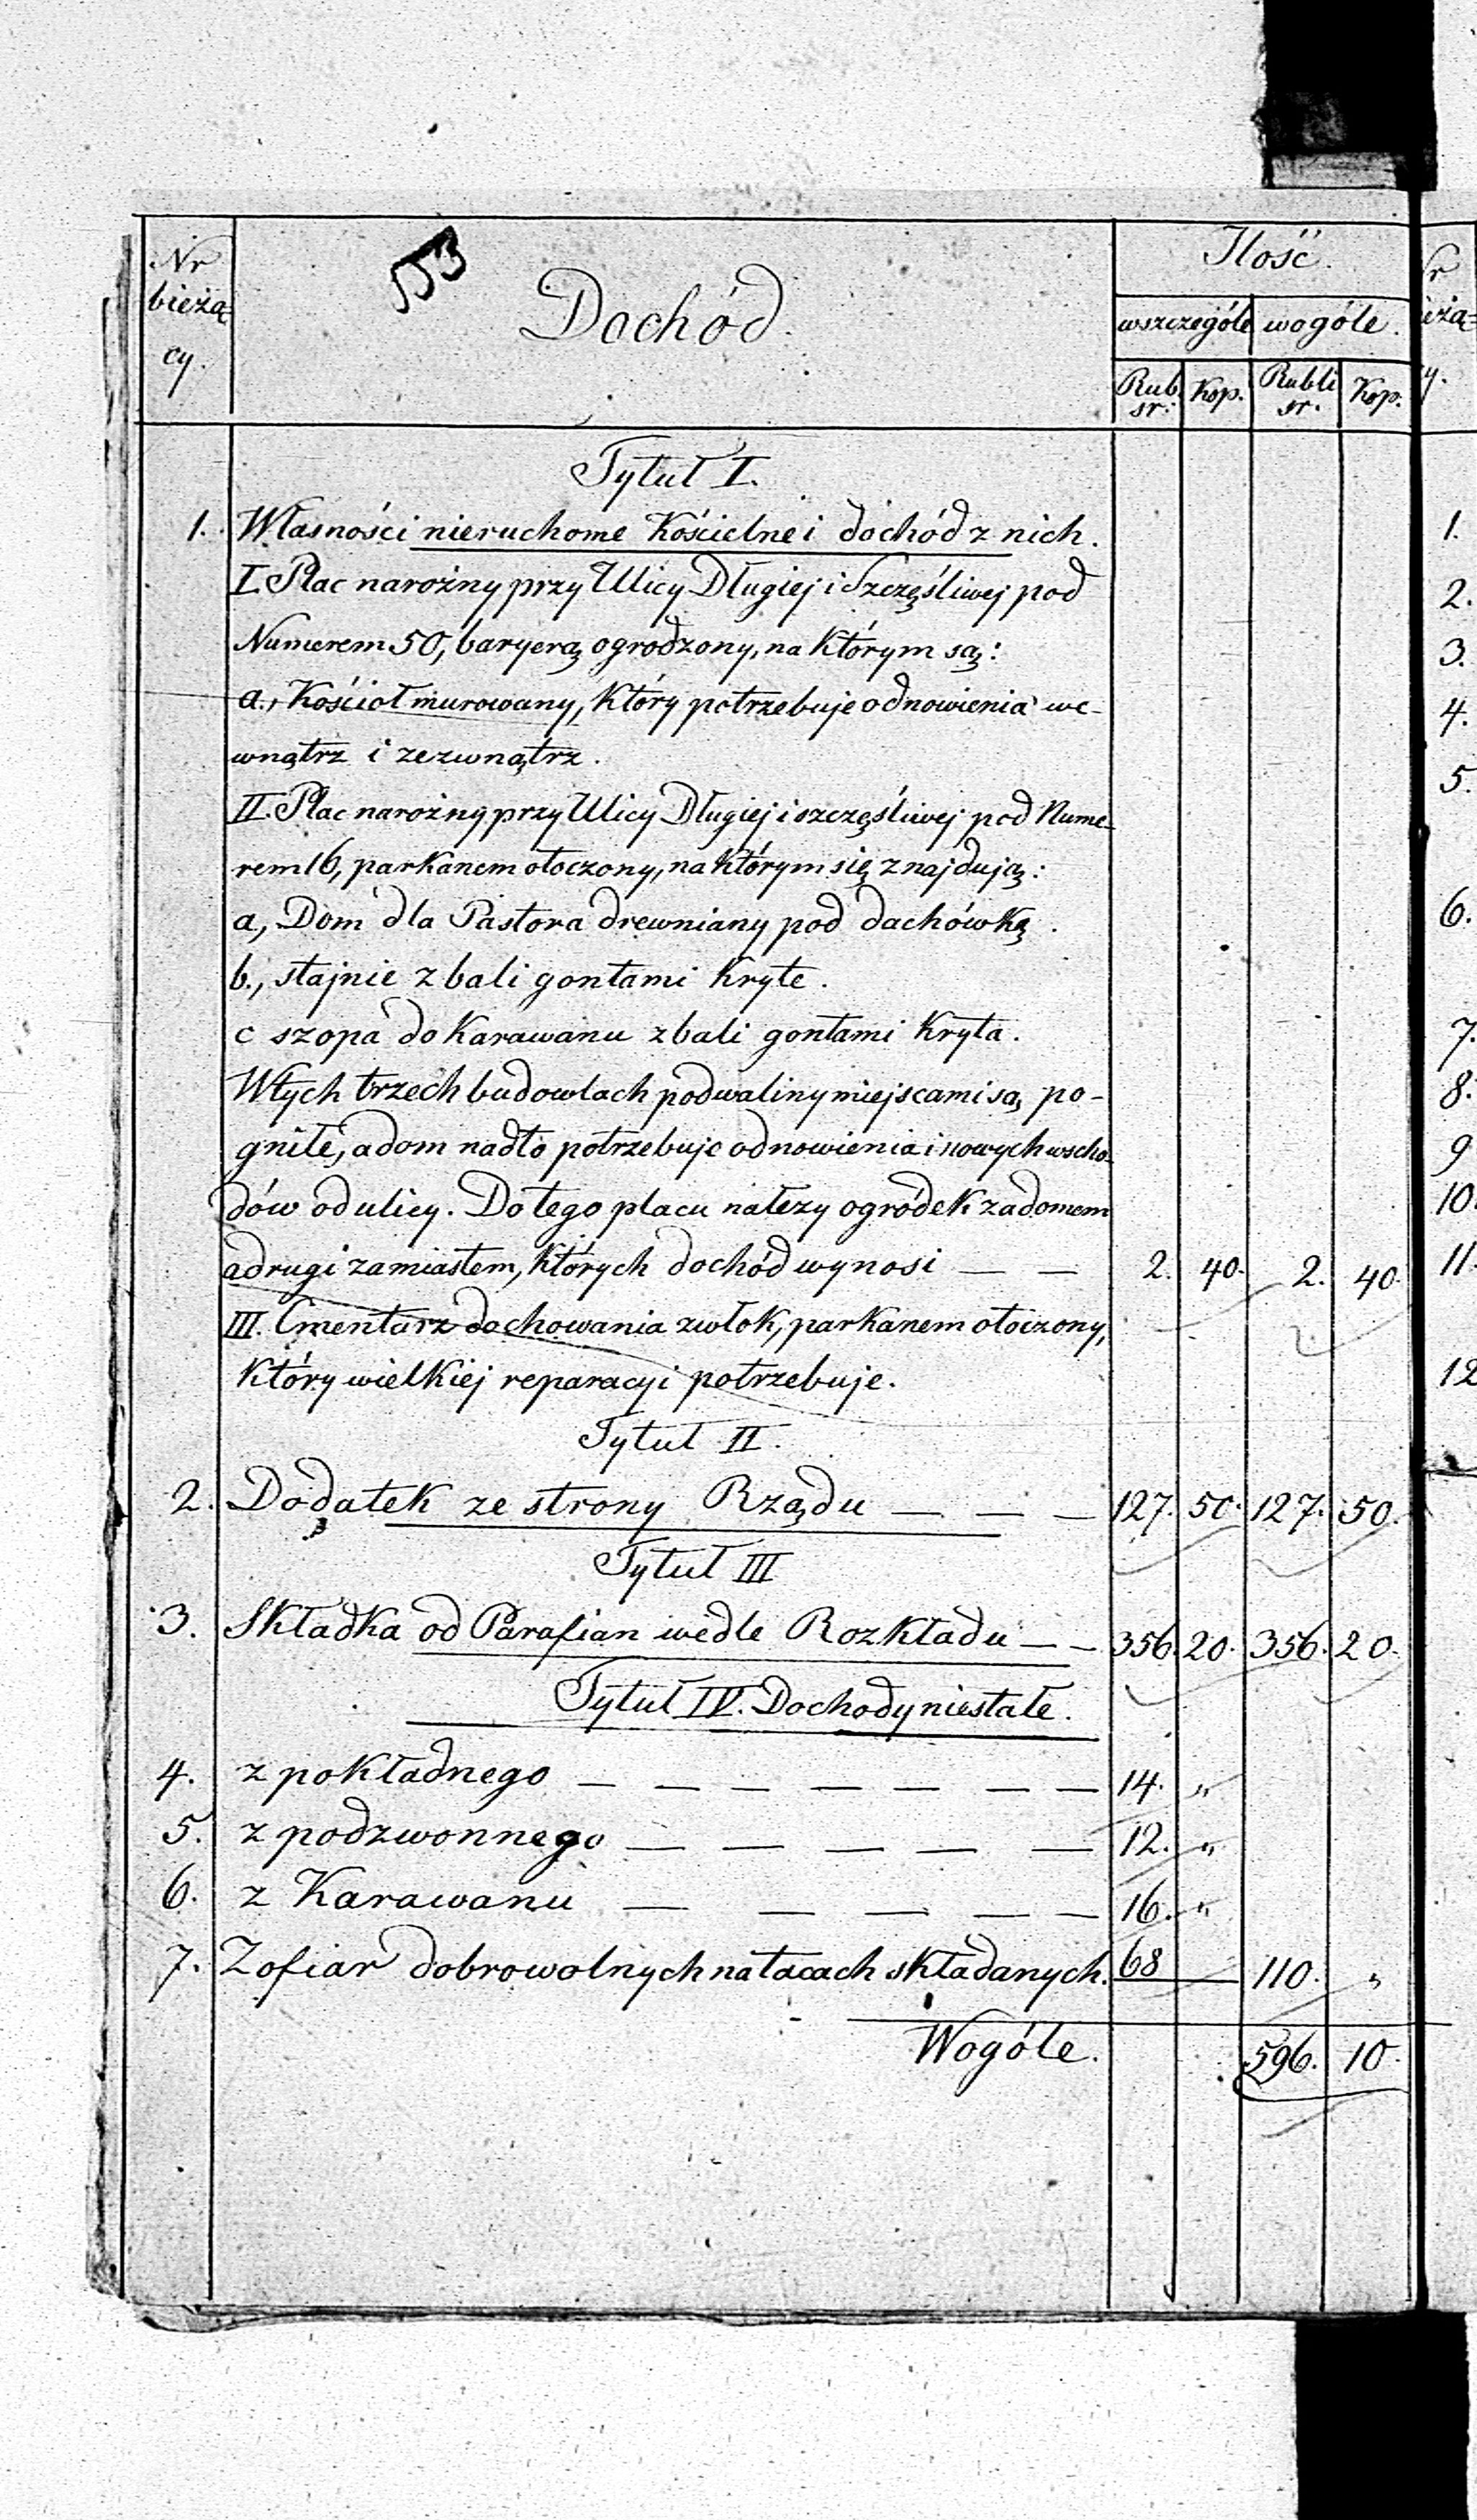 153
Nr
bieżą=
cy.
Dochód.
Ilość.
wszczególe wogóle.
Rub. sr: Kop. Rubli sr. Kop.
Tytuł I.
1. Własności nieruchome Kościelne i dochód z nich.
I. Plac narożny przy Ulicy Długiej i Szczęśliwej pod
Numerem 50, baryerą ogrodzony, na którym są:
a., Kościoł murowany, który potrzebuje odnowienia we-
wnątrz i zezwnątrz.
II. Plac narożny przy Ulicy Długiej i szczęśliwej pod Nume-
rem 16, parkanem otoczony, na którym się znajdują:
a, Dom dla Pastora drewniany pod dachówką.
b., stajnie z bali gontami kryte.
c szopa do Karawanu z bali gontami kryta.
W tych trzech budowlach podwaliny miejscami są po-
gniłe, a dom nadto potrzebuje odnowienia i nowych wscho-
dów od ulicy. Do tego placu należy ogródek za domem
a drugi za miastem, których dochód wynosi — — 2. 40. 2. 40
III. Cmentarz do chowania zwłok, parkanem otoczony,
który wielkiej reparacyi potrzebuje.
Tytuł II.
2. Dodatek ze strony Rządu — — — 127. 50. 127. 50.
Tytuł III
3. Składka od Parafian wedle Rozkładu — — 356. 20. 356. 20.
Tytuł IV. Dochody niestałe.
4. z pokładnego — — — — — — — 14. "
5. z podzwonnego — — — — — 12. "
6. z Karawanu — — — — — 16. "
7. Z ofiar dobrowolnych na tacach składanych. 68 — 110. "
Wogóle. 596. 10.
Nr
eżą=
y.
1.
2.
3.
4.
5.
6.
7.
8.
9
10.
11.
12